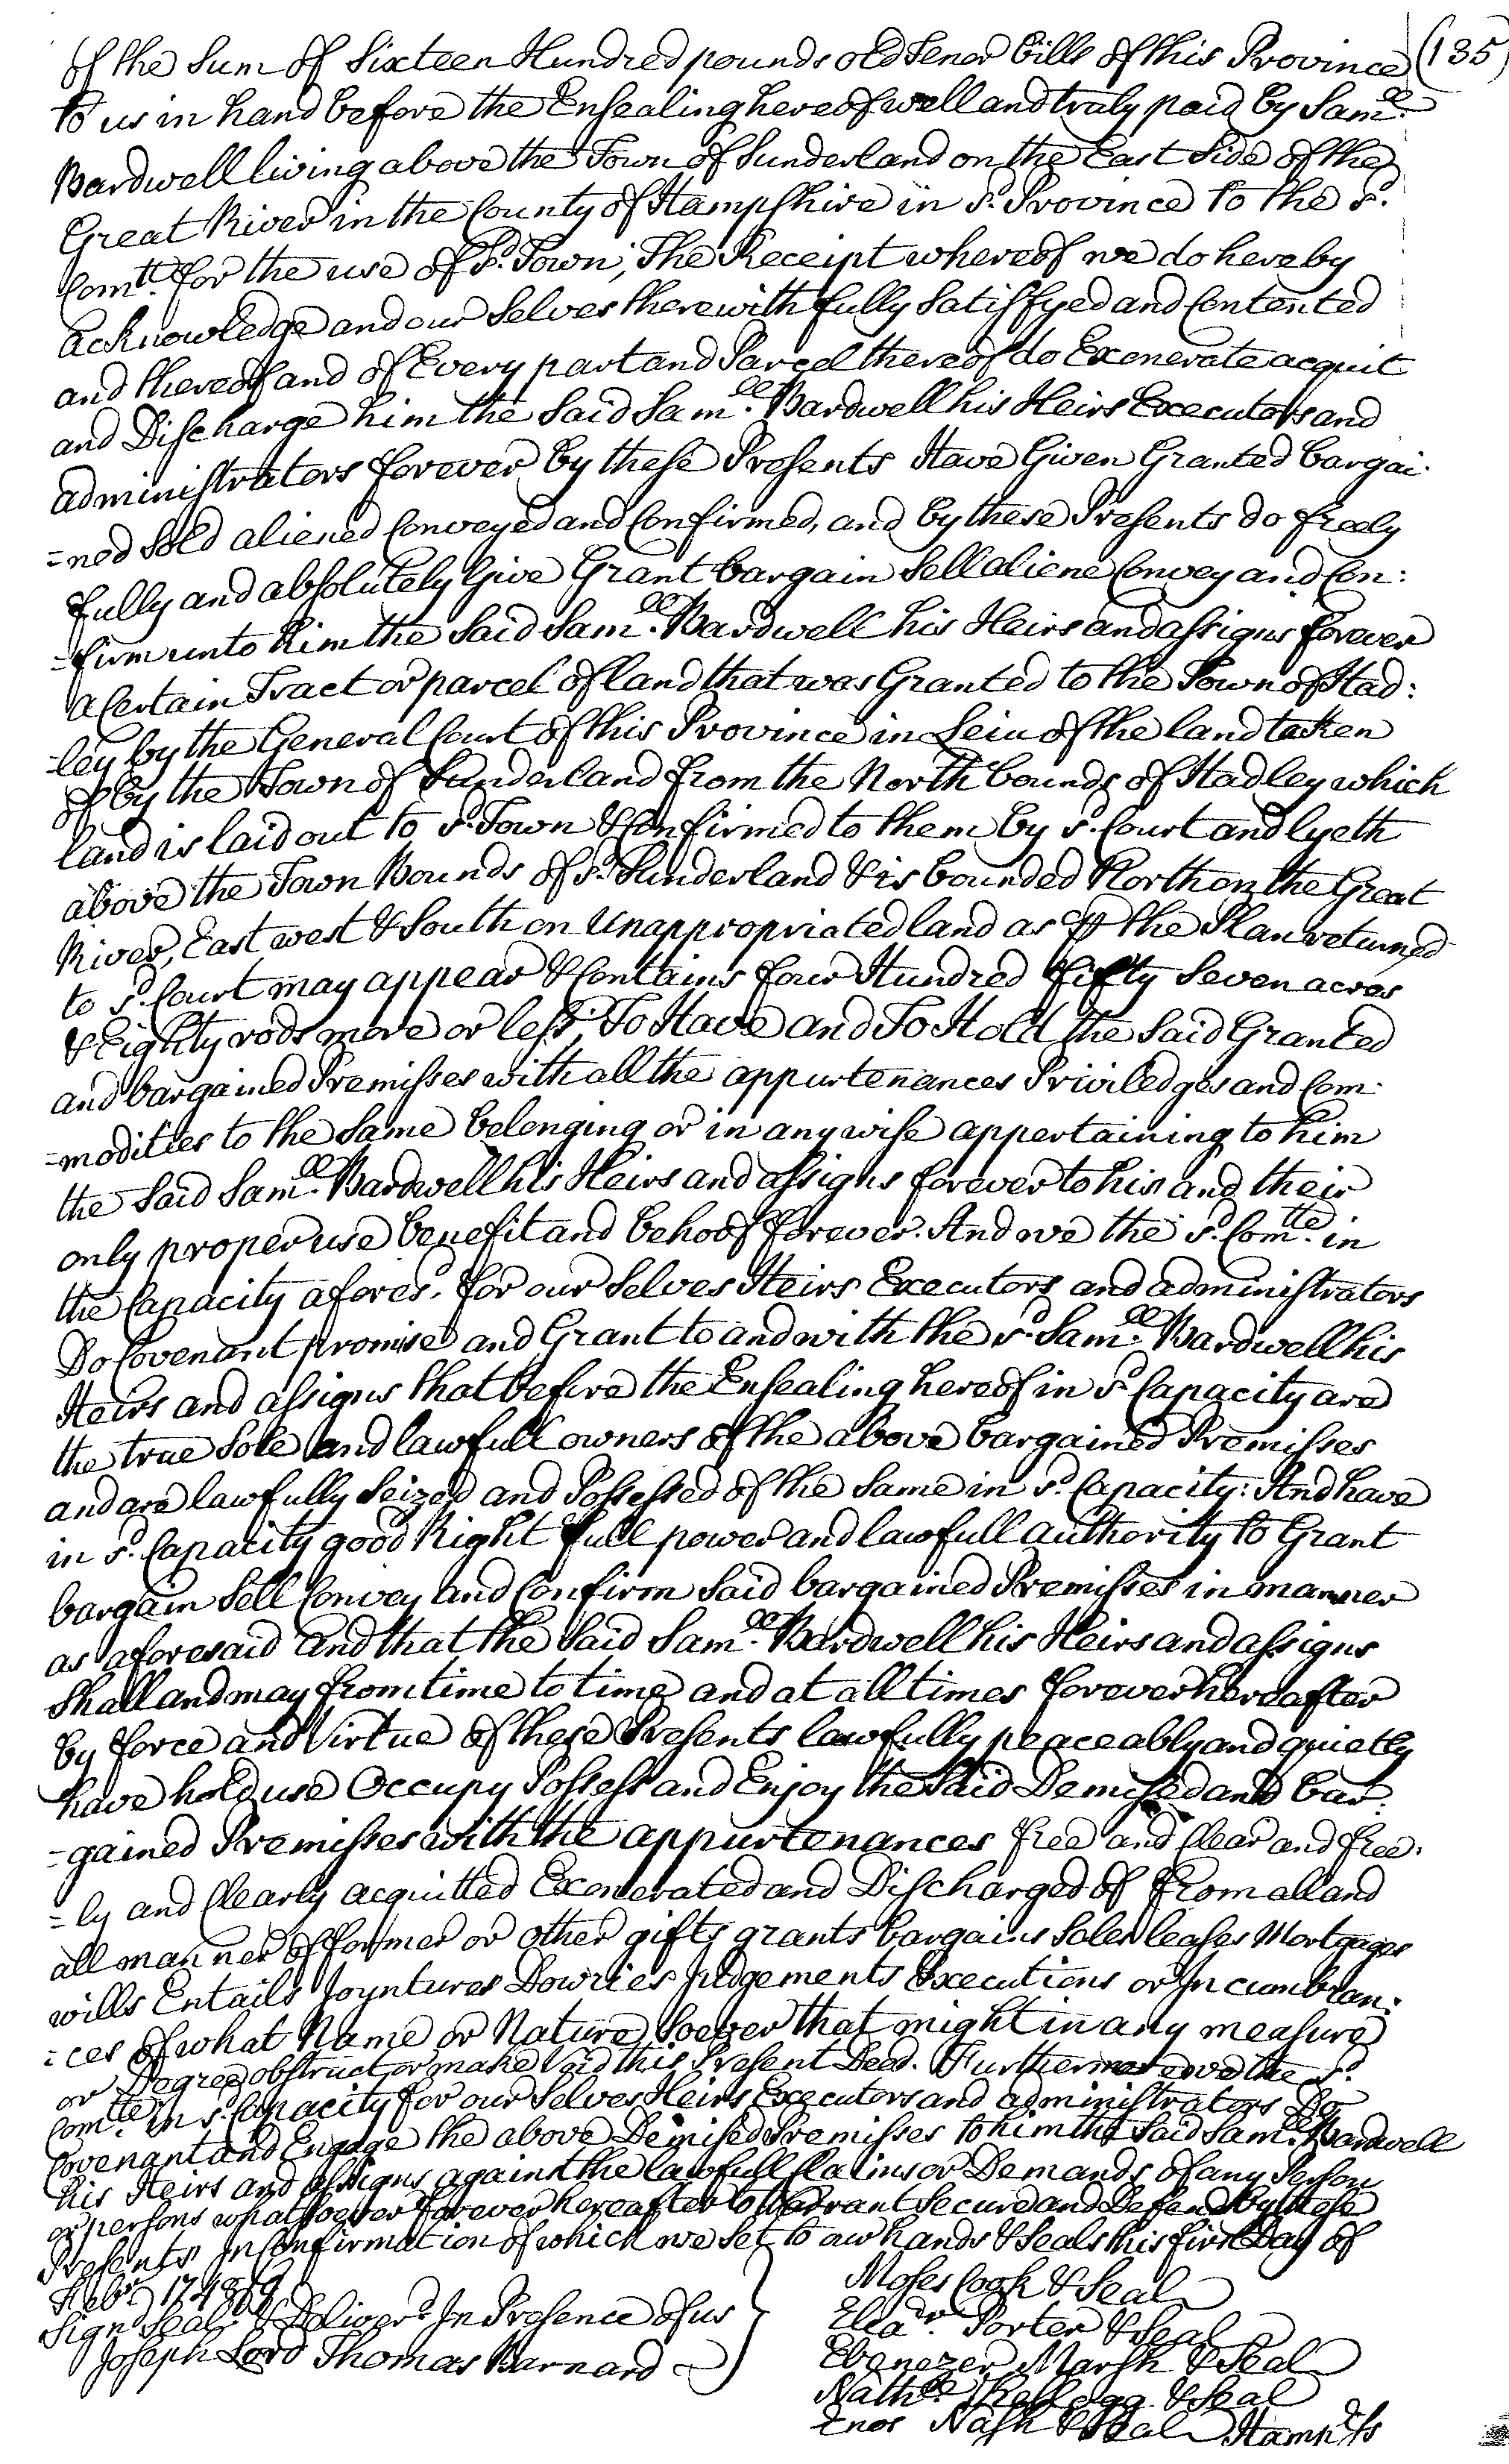 of the Sum of Sixteen Hundred pounds old Tenor bills of this Province (135
to us in hand before the Ensealing hereof well and truly paid by Samll.
Bardwell living above the Town of Sunderland on the East Side of the
Great River in the County of Hampshire in sd. Province to the sd.
Comtt. for the use of sd. Town, The Receipt whereof we do hereby
acknowledge and our Selves therewith fully Satisfyed and Contented
and thereof and of Every part and Parcel thereof do Exonerate acquit
and Discharge him the Said Samll. Bardwell his Heirs Executors and
administrators forever by these Presents Have Given Granted bargai-
=ned Sold aliened Conveyed and Confirmed, and by these Presents do freely
fully and absolutely Give Grant bargain Sell aliene Convey and Con:
=firm unto him the Said Samll. Bardwell his Heirs and assigns forever
a Certain Tract or parcel of land that was Granted to the Town of Had:
=ley by the General Court of this Province in Leiu of the land taken
of by the Town of Sunderland from the North bounds of Hadley which
land is laid out to sd. Town & Confirmed to them by sd. Court and lyeth
above the Town Bounds of sd. Sunderland & is bounded North on the Great
River, East west & South on Unappropriated land as ℘ the Plan returned
to sd. Court may appear & Contains four Hundred fifty Seven acres
& Eighty rods more or less, To Have and To Hold the Said Granted
and bargained Premisses with all the appurtenances Priviledges and Com-
=modities to the Same belonging or in any wise appertaining to him
the Said Samll. Bardwell his Heirs and assigns forever to his and their
only proper use benefit and behoof forever. And we the sd. Comtte. in
the Capacity aforesd. for our Selves Heirs Executors and administrators
Do Covenant promise and Grant to and with the sd. Samll. Bardwell his
Heirs and assigns that before the Ensealing hereof in sd. Capacity are
the true Sole and lawfull owners of the above bargained Premisses
and are lawfully Seized and Possessed of the Same in sd. Capacity: And have
in sd. Capacity good Right full power and lawfull authority to Grant
bargain Sell Convey and Confirm Said bargained Premisses in manner
as aforesaid and that the Said Samll. Bardwell his Heirs and assigns
Shall and may from time to time and at all times forever hereafter
by force and Virtue of these Presents lawfully peaceably and quietly
have hold use Occupy Possess and Enjoy the Said Demised and bar:
=gained Premisses with the appurtenances free and Clear and free-
=ly and Clearly acquitted Exonerated and Discharged of from all and
all manner of former or other gifts grants bargains Sales leases Mortgages
wills Entails Joyntures Dowries Judgements Executions or Incumbran:
=ces of what Name or Nature Soever that might in any measure
or Degree obstruct or make Void this Present Deed. Furthermore we the sd.
Comtte. in sd. Capacity for our Selves Heirs Executors and administrators Do
Covenant and Engage the above Demised Premisses to him the Said Samll. Bardwell
his Heirs and assigns against the lawfull Claims or Demands of any Person
or persons whatsoever forever hereafter to Warrant Secure and Defend by these
Presents In Confirmation of which we Set to our hands & Seals this first Day of
Febr. 1748/9
Signd Seald & Deliverd In Presence of us
Joseph Lord Thomas Barnard
Moses Cook & Seal
Eleazr. Porter & Seal
Ebenezer Marsh & Seal
Nathll. Kellogg & Seal
Enos Nash & Seal Hampr. ss